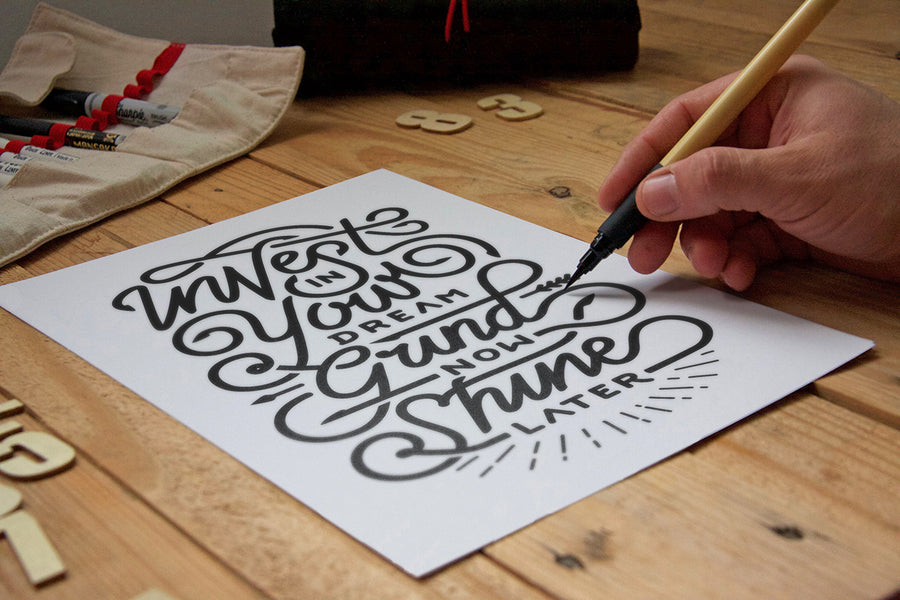 Invest
IN
Your
DREAM
Grind
NOW
Shine
LATER
Sharpie
MONOKO
8
3